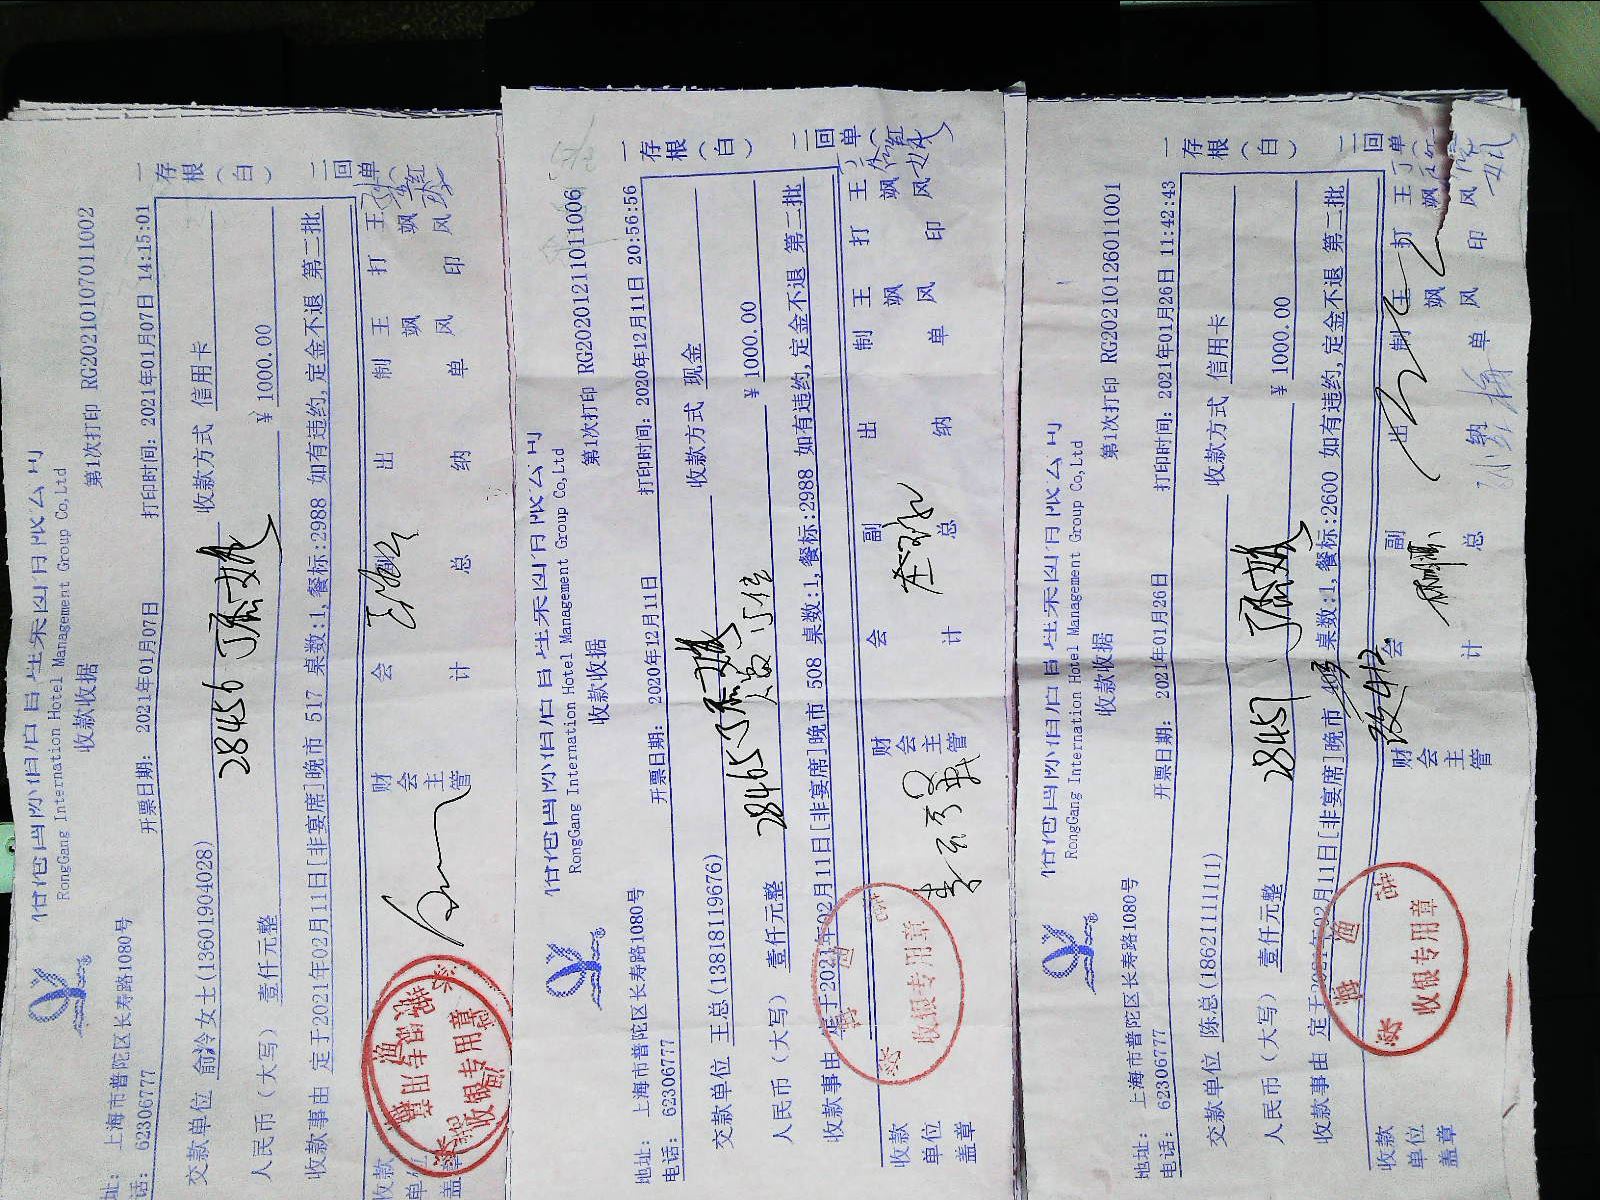 RongGang International Hotel Management Group Co,Ltd
收款收据
第1次打印 RG20210107011002
址: 上海市普陀区长寿路1080号
话: 62306777
开票日期: 2021年01月07日
打印时间: 2021年01月07日 14:15:01
交款单位 俞泠女士(13601904028)
28456
收款方式 信用卡
人民币(大写) 壹仟元整
¥ 1000.00
收款事由 定于2021年02月11日[非宴席]晚市 517 桌数:1,餐标:2988 如有违约,定金不退 第二批
一存根(白) 二回单
收款单位盖章
财会主管
会计
总
出纳
制单 王飒风
打印 王飒风
收银专用章
RongGang International Hotel Management Group Co,Ltd
收款收据
第1次打印 RG20201211011006
地址: 上海市普陀区长寿路1080号
电话: 62306777
开票日期: 2020年12月11日
打印时间: 2020年12月11日 20:56:56
交款单位 王总(13818119676)
28465
收款方式 现金
人民币(大写) 壹仟元整
¥ 1000.00
收款事由 定于2021年02月11日[非宴席]晚市 508 桌数:1,餐标:2988 如有违约,定金不退 第二批
一存根(白) 二回单
收款单位盖章
财会主管
会计
副总
出纳
制单 王飒风
打印 王飒风
收银专用章
RongGang International Hotel Management Group Co,Ltd
收款收据
第1次打印 RG20210126011001
地址: 上海市普陀区长寿路1080号
电话: 62306777
开票日期: 2021年01月26日
打印时间: 2021年01月26日 11:42:43
交款单位 陈总(18621111111)
28457
收款方式 信用卡
人民币(大写) 壹仟元整
¥ 1000.00
收款事由 定于2021年02月11日[非宴席]晚市 桌数:1,餐标:2600 如有违约,定金不退 第二批
一存根(白) 二回单
收款单位盖章
财会主管
会计
副总
出纳
制单 王飒风
打印 王飒风
收银专用章